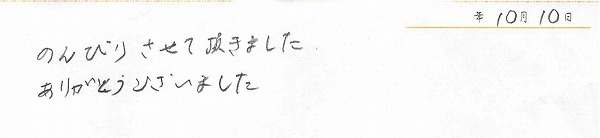 年10月10日
のんびりさせて頂きました
ありがとうございました